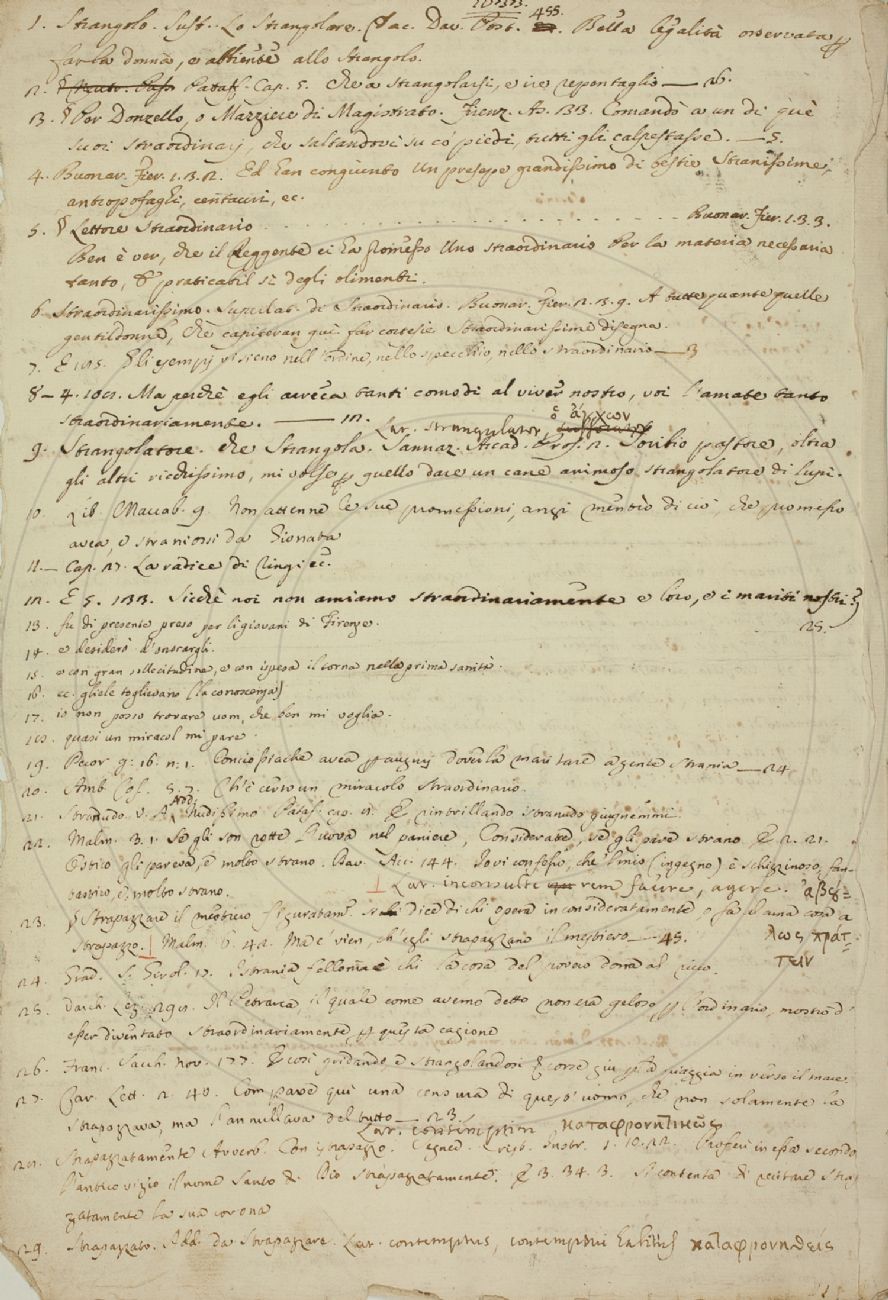 1. Strangolo. Sust. Lo Strangolare. Tac. Dav. Post. 455. Bella legalità osservata
far la donna, e attenente allo Strangolo.
2. Pataff. Cap. 5. che a strangolarsi, e ire repentaglio — 26.
3. § Per Donzello, o Mazziere di Magistrato. Fienz. As. 133. Comandò a un di que
suoi straordinarj, che saltandovi su co' piedi, tutti gli calpestasse. — 5.
4. Buonar. Fier. 1. 3. 2. Ed han congiunto Un presepe grandissimo di bestie Stranissime,
antropofagi, centauri, ec.
5. § Lettore Straordinario . . . . . . . . . . Buonar. Fier. 1. 3. 3.
Ben è ver, che il Reggente ci ha promesso Uno straordinario Per la materia necessaria
tanto, E praticabil sì degli alimenti.
6. Straordinarissimo. Superlat. di Straordinario. Buonar. Fier. 2. 3. 9. A tutte quante quelle
gentildonne, Che capiteran qui far cortesie Straordinarissime disegna.
7. E 105. Gli esempj vi sieno nell'ordine, nello specchio, nello straordinario — 3
8 — 4. Ma perchè egli arreca tanti comodi al viver nostro, voi l'amate tanto
straordinariamente. — 12.
Lat. strangulator, ὁ ἄγχων
9. Strangolatore. che Strangola. Sannaz. Arcad. Pros. 2. Toribio pastore, oltra
gli altri ricchissimo, mi volse per quello dare un cane animoso strangolatore di lupi.
10. Lib. Maccab. 9. Non attenne le sue promessioni, anzi mentìo di ciò, che promesso
avea, e straniossi da Gionata
11. — Cap. 27. La radice di Ringi ec.
12. E 5. 133. Sicchè noi non amiamo straordinariamente e loro, e i mariti nostri?
25.
13. fu di presente preso per li giovani di Firenze.
14. e desiderò d'onorargli.
15. e con gran sollecitudine, e con ispesa il torna nella prima sanità.
16. ec. gliele toglievano (la conoscenza)
17. io non posso trovare uom, che ben mi voglia.
18. quasi un miracol mi pare.
19. Pecor g. 16. n. 1. Conciossiachè avea per augurj doverla maritare a gente strania — 24
20. Amb. Cof. 5. 7. Ch'è certo un miracolo straordinario.
21. Stranudo. v. A. Nudissimo Pataf. cap. 9. E rintrillando istranudo giugnemmi.
22. Malm. 3. 1. Se gli son rotte l'uova nel paniere, Considerate, se gli pare strano. E 2. 21.
Ostico gli pareva, e molto strano. Dav. Acc. 144. Iovi confesso, che l'mio (ingegno) è schizzinoso, fan-
tastico, e molto strano. Lat. inconsulte rem facere, agere. ἀβου=
23. § Strapazzare il mestiero figuratam. si dice di chi opera inconsideratamente o fa alcuna cosa a
strapazzo. Malm. 6. 42. Ma e' vien, ch'egli strapazzano il mestiero — 45. λως πράτ-
τειν
24. Grad. S. Girol. 17. Istrania fellonia è chi la cosa del povero dona al ricco.
25. Varch. Lez. 290. Il Petrarca, il quale come avemo detto non era geloso per l'ordinario, mostrò d'
esser diventato straordinariamente per questa cagione
26. Franc. Sacch. nov. 177. E così gridando, e strangolandosi E corse giù per la piaggia in verso il mare.
27. Car. Lett. 2. 40. Comparve qui una censura di quest'uomo, che non solamente la
strapazzava, ma l'annullava del tutto — 23.
Lat. contemptim, καταφρονητικῶς
28. Strapazzatamente Avverb. Con istrapazzo. Segner. Crist. Instr. 1. 10. 22. Proferì in essa secondo
l'antico vizio il nome santo di Dio strapazzatamente. E 3. 34. 3. Si contenta di recitare strap
zatamente la sua corona
29. Strapazzato. Add. da Strapazzare. Lat. contemptus, contemptui habitus καταφρονηθείς